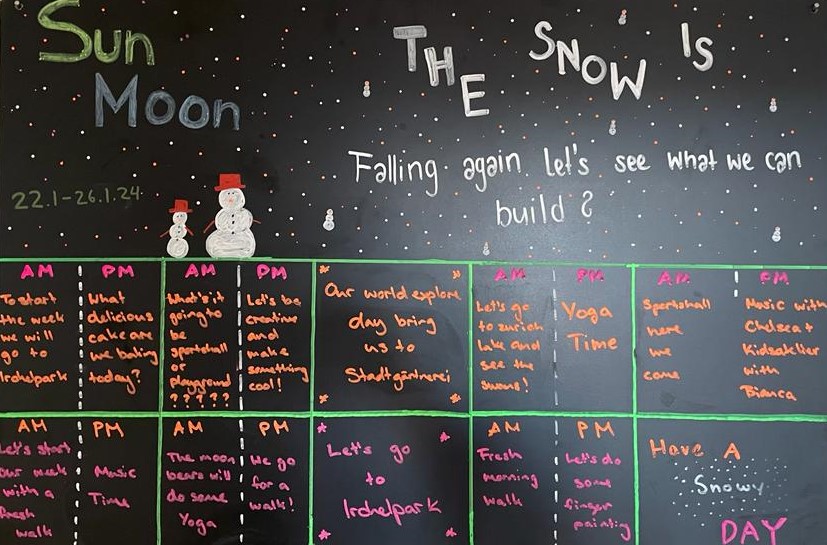 Sun
Moon
THE SNOW IS
Falling again. Let's see what we can
build ?
22.1-26.1.24.
AM
To start
the week
we will
go to
Irchelpark
PM
What
delicious
cake are
we baking
today?
AM
What's it
going to
be
sportshall
or
playground
? ? ? ? ?
PM
Let's be
creative
and
make
something
cool!
Our world explore
day bring
us to
Stadtgärtnerei
AM
Let's go
to zurich
lake and
see the
swans!
PM
Yoga
Time
AM
Sportshall
here
we
come
PM
Music with
Chelsea +
Kidsatelier
with
Bianca
AM
Let's start
our week
with a
fresh
walk
PM
Music
Time
AM
The moon
bears will
do some
Yoga
PM
We go
for a
walk!
Let's go
to
Irchelpark
AM
Fresh
morning
walk
PM
Let's do
some
finger
painting
Have A
Snowy
DAY